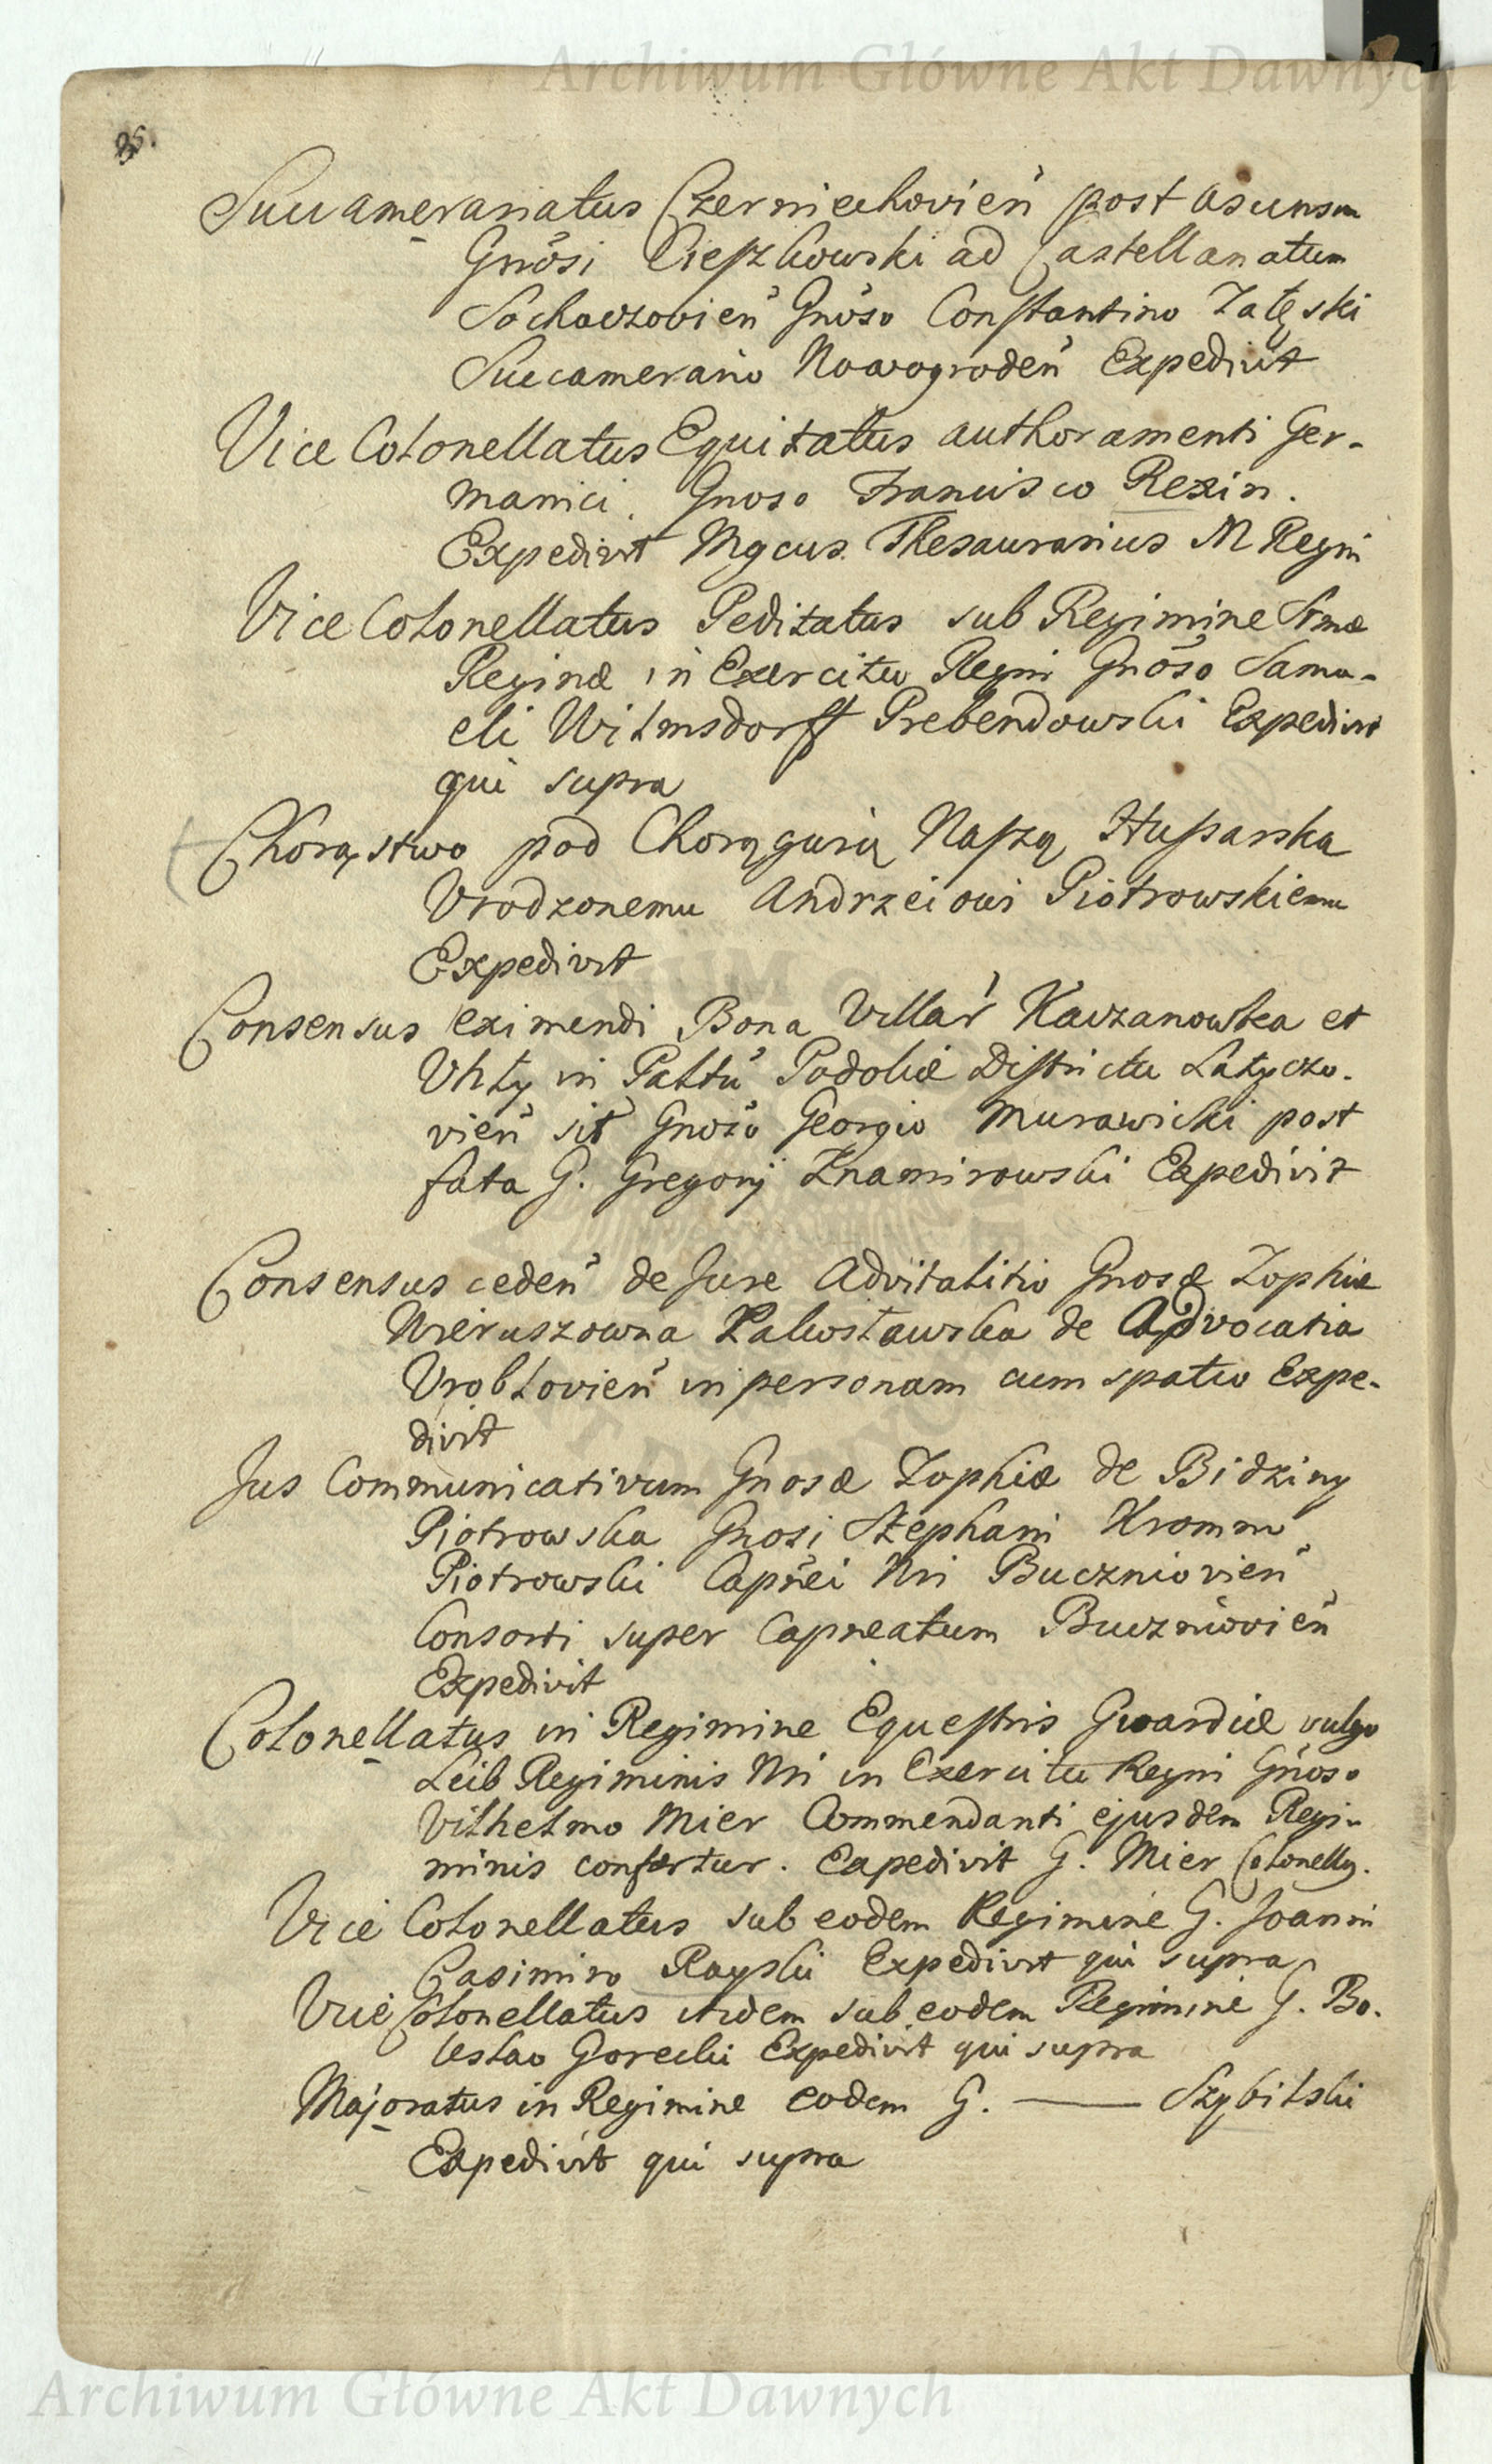 Archiwum Główne Akt Dawnych
95.
Succameranatus Czerniechovień post asensum
Gnõsi Cieszkowski ad Castellanatum
Sochaczovień Gnõso Constantino Załęski
Succamerario Nowogrodeń Expedivit
Vice Colonellatus Equitatus authoramenti Ger-
manici. Gnoso Francisco Rexin.
Expedivit Mgcus. Thesaurarius M Regni
Vice Colonellatus Peditatus sub Regimine Srmæ
Reginæ in Exercitu Regni Gnõso Samu-
eli Wilmsdorff Prebendowski Expedivit
qui supra
Chorąstwo pod Chorągwią Naszą Hussarską
Vrodzonemu Andrzeiowi Piotrowskiemu
Expedivit
Consensus eximendi Bona Villar Kaczanowka et
Uhly in Palltũ Podoliæ Districtu Latyczo-
vień sit Gnoso Georgio Murawicki post
fata G. Gregorij Znamirowski Expedivit
Consensus cedeń de Jure Advitalitio Gnosæ Zophiæ
Wieruszowna Zakrsławska de Advocatia
Vroblovień in personam cum spatio Expe-
divit
Jus Communicativum Gnosæ Zophiæ de Bidziny
Piotrowska Gnosi Stephani Kromno
Piotrowski Capñei Nri Buczniovień
Consorti super Capneatum Buczniovień
Expedivit
Colonellatus in Regimine Equestris Gwardiæ vulgo
Leib Regiminis Nri in Exercitu Regni Gnõso
Vilhelmo Mier Commendanti ejusdem Regi-
minis confertur. Expedivit G. Mier Colonellus.
Vice Colonellatus sub eodem Regimine G. Joanni
Casimiro Rayski Expedivit qui supra
Vice Colonellatus itidem sub eodem Regimine G. Bo-
leslao Gorecki Expedivit qui supra
Majoratus in Regimine eodem G. —— Szybilski
Expedivit qui supra
Archiwum Główne Akt Dawnych